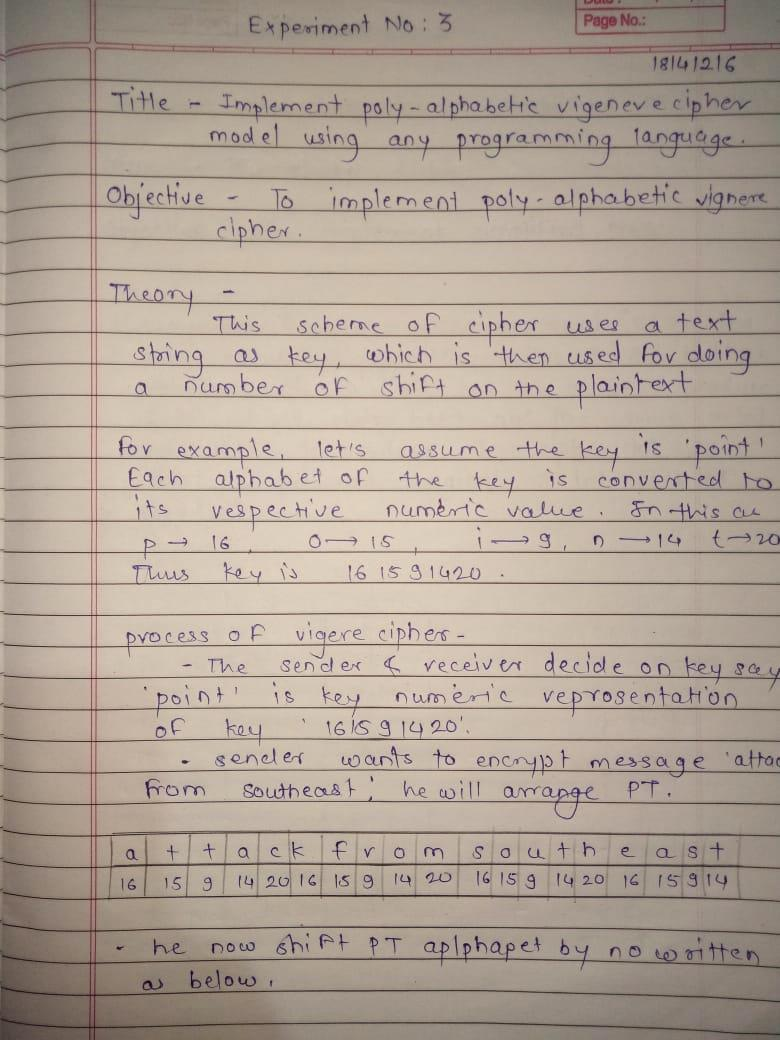 Experiment No: 3
Page No.:
18/4/216
Title - Implement poly-alphabetic vigeneve cipher
model using any programming language.
Objective - To implement poly-alphabetic vignere
cipher.
Theory -
This scheme of cipher uses a text
string as key, which is then used for doing
a number of shift on the plaintext
for example, let's assume the key is 'point'
Each alphabet of the key is converted to
its respective numeric value. In this
p → 16, o → 15, i → 9, n → 14 t → 20
Thus key is 16 15 9 14 20.
process of vigere cipher -
- The sender & receiver decide on key say
'point' is key numeric reprosentation
of key '16 15 9 14 20'.
• sender wants to encrypt message 'attac
from southeast', he will arrange PT.
a t t a c k f r o m s o u t h e a s t
16 15 9 14 20 16 15 9 14 20 16 15 9 14 20 16 15 9 14
- he now shift PT aplphapet by no written
as below.